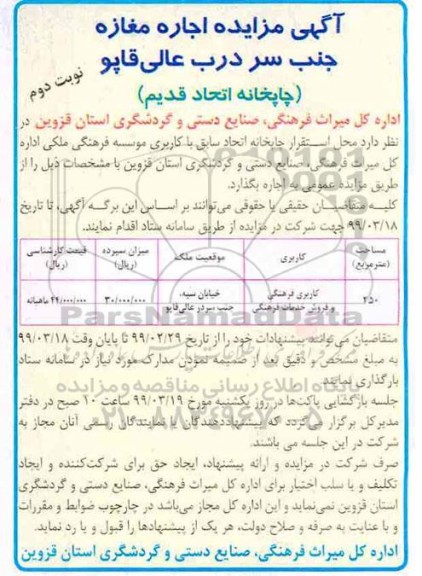 آگهی مزایده اجاره مغازه
جنب سر درب عالی‌قاپو
نوبت دوم
(چاپخانه اتحاد قدیم)
اداره کل میراث فرهنگی، صنایع دستی و گردشگری استان قزوین در
نظر دارد محل استقرار چاپخانه اتحاد سابق با کاربری موسسه فرهنگی ملکی اداره
کل میراث فرهنگی، صنایع دستی و گردشگری استان قزوین با مشخصات ذیل را از
طریق مزایده عمومی به اجاره بگذارد.
کلیه متقاضیان حقیقی یا حقوقی می‌توانند بر اساس این برگه آگهی، تا تاریخ
۹۹/۰۳/۱۸ جهت شرکت در مزایده از طریق سامانه ستاد اقدام نمایند.
مساحت (مترمربع) کاربری موقعیت ملک میزان سپرده (ریال) قیمت کارشناسی (ریال)
۲۵۰ کاربری فرهنگی و فروش خدمات فرهنگی خیابان سپه، جنب سردر عالی‌قاپو ۳۰/۰۰۰/۰۰۰ ماهیانه
متقاضیان می‌توانند پیشنهادات خود را از تاریخ ۹۹/۰۲/۲۹ تا پایان وقت ۹۹/۰۳/۱۸
به مبلغ مشخص و دقیق بعد از ضمیمه نمودن مدارک مورد نیاز در سامانه ستاد
بارگذاری نمایند.
جلسه بازگشایی پاکت‌ها در روز یکشنبه مورخ ۹۹/۰۳/۱۹ ساعت ۱۰ صبح در دفتر
مدیرکل برگزار می‌گردد که پیشنهاددهندگان یا نمایندگان رسمی آنان مجاز به
شرکت در این جلسه می باشند.
صرف شرکت در مزایده و ارائه پیشنهاد، ایجاد حق برای شرکت‌کننده و ایجاد
تکلیف و یا سلب اختیار برای اداره کل میراث فرهنگی، صنایع دستی و گردشگری
استان قزوین نمی‌نماید و این اداره کل مجاز می‌باشد در چارچوب ضوابط و مقررات
و با عنایت به صرفه و صلاح دولت، هر یک از پیشنهادها را قبول و یا رد نماید.
اداره کل میراث فرهنگی، صنایع دستی و گردشگری استان قزوین
ParsNamadData
پایگاه اطلاع رسانی مناقصه و مزایده
۰۲۱-۸۸۳۴۹۶۷۰-۵